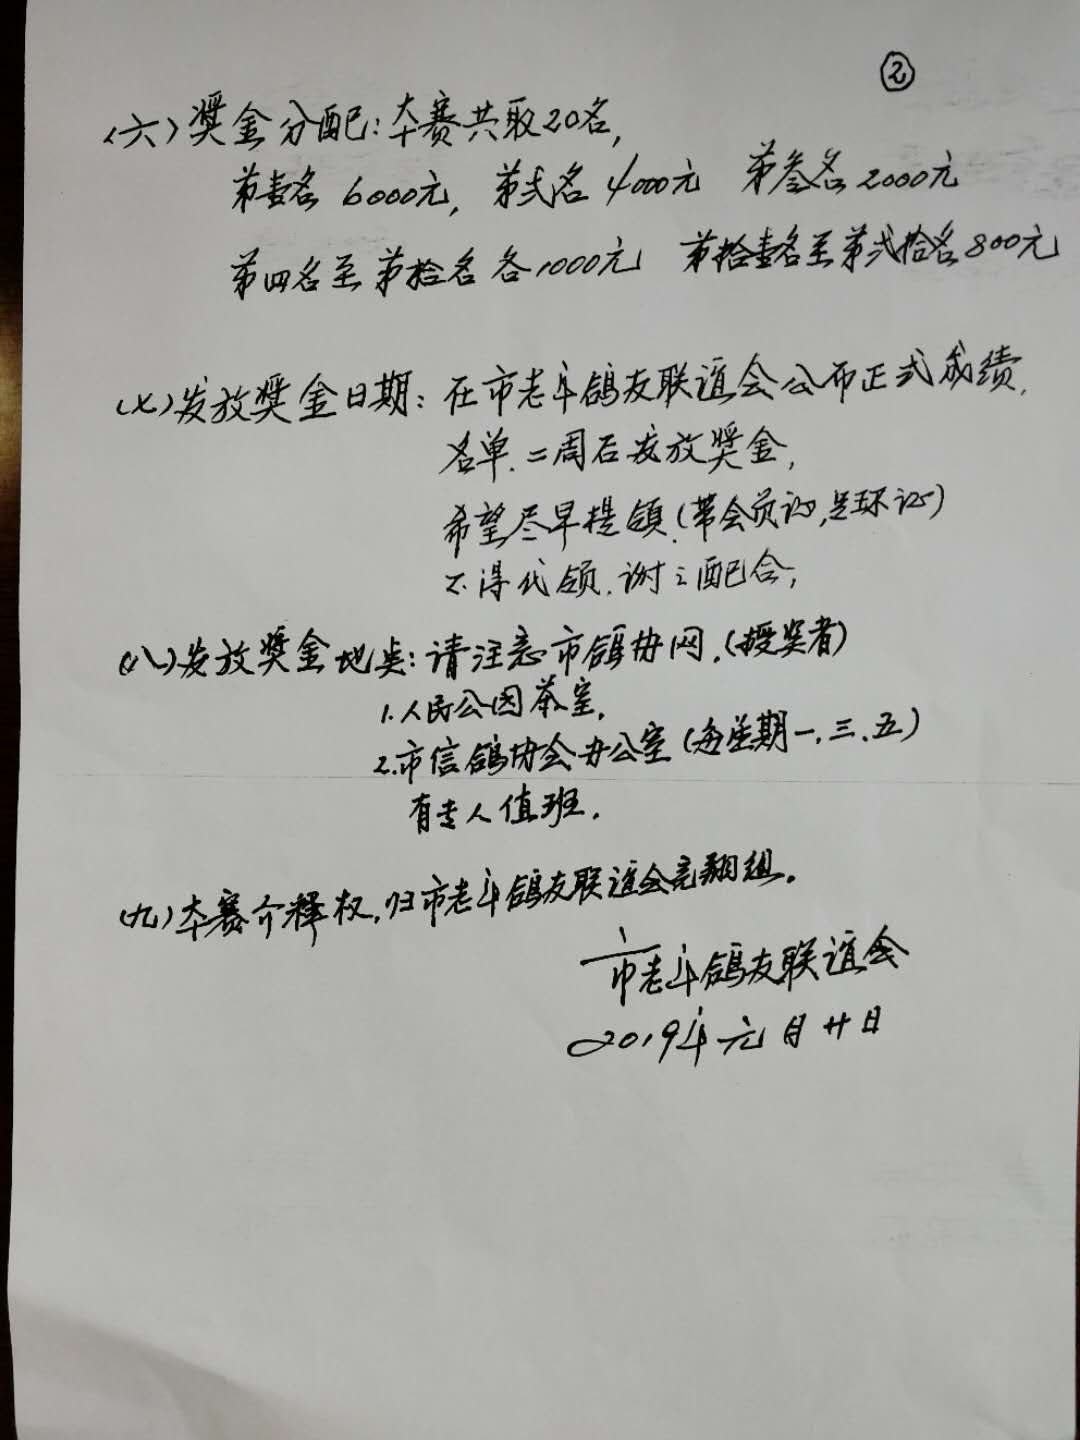 ②
(六)奖金分配:本赛共取20名,
第壹名 6000元, 第弍名 4000元 第叁名 2000元
第四名至第拾名各1000元 第拾壹名至第弍拾名800元
(七)发放奖金日期: 在市老年鸽友联谊会公布正式成绩,
名单.二周后发放奖金,
希望尽早提领.(带会员证,足环证)
不得代领.谢之配合,
(八)发放奖金地点:请注意市鸽协网.(授奖者)
1.人民公园茶室.
2.市信鸽协会办公室(每星期一.三.五)
有专人值班.
(九)本赛介释权.归市老年鸽友联谊会竞翔组。
市老年鸽友联谊会
2019年元月廿日